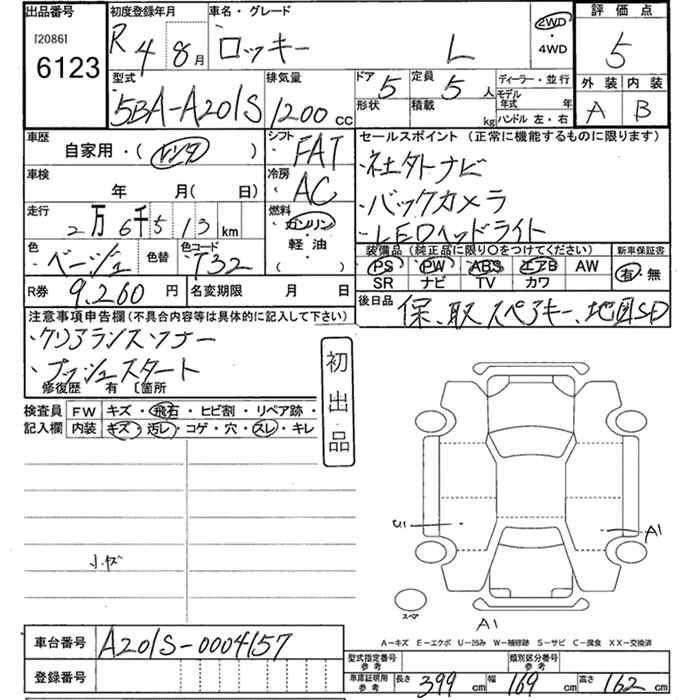 出品番号 初度登録年月 車名・グレード 評価点
[2086] 6123 R4 8月 ロッキー L 2WD・4WD 5
型式 排気量 ドア 5 定員 5人 ディーラー・並行 外装 内装
5BA-A201S 1200cc 形状 積載 kg モデル年式 年 ハンドル 左・右 A B
車歴 シフト FAT セールスポイント (正常に機能するものに限ります)
自家用・(レンタ) ・社外ナビ
車検 年 月(日) 冷房 AC ・バックカメラ
走行 2万6千513km 燃料 ガソリン・軽油・( ) ・LEDヘッドライト
色 ・ベージュ 色替 色コード ・T32 装備品 (純正品に限り○をつけてください) 新車保証書
PS PW ABS エアB AW 有・無
SR ナビ TV カワ
R券 9,260円 名変期限 月 日 後日品 保、取、スペアキー、地図SD
注意事項申告欄(不具合内容等は具体的に記入して下さい)
・クリアランスソナー
・プッシュスタート
修復歴 有 〔箇所
初出品
検査員 FW キズ・飛石・ヒビ割・リペア跡・
記入欄 内装 キズ・汚レ・コゲ・穴・スレ・キレ
U1 A1
スペア
A1
A-キズ E-エクボ U-凹み W-補修跡 S-サビ C-腐食 XX-交換済
車台番号 A201S-0004157
登録番号
型式指定番号 参考 類別区分番号 参考
車庫証明用 参考 長さ 399cm 幅 169cm 高さ 162cm